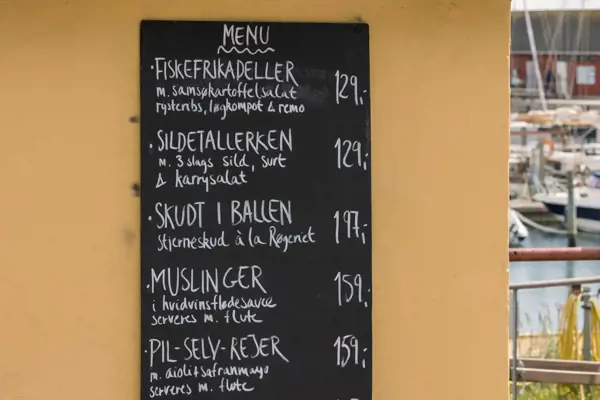 MENU
·FISKEFRIKADELLER
m. samsøkartoffelsalat
rysteribs, løgkompot & remo
129,-
·SILDETALLERKEN
m. 3 slags sild, surt
& karrysalat
129,-
·SKUDT I BALLEN
Stjerneskud à la Røgeriet
197,-
·MUSLINGER
i hvidvinsflødesauce
serveres m. flute
159,-
·PIL-SELV-REJER
m. aioli & safranmayo
serveres m. flute
159,-